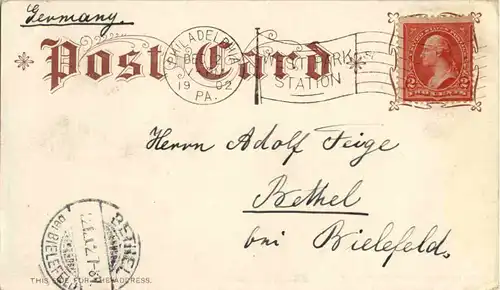 Germany.
Post Card
PHILADELPHIA
1902
PA.
STATION
2 2
Herrn Adolf Feige
Bethel
bei Bielefeld.
BETHEL
bei BIELEFELD
THIS SIDE FOR THE ADDRESS.